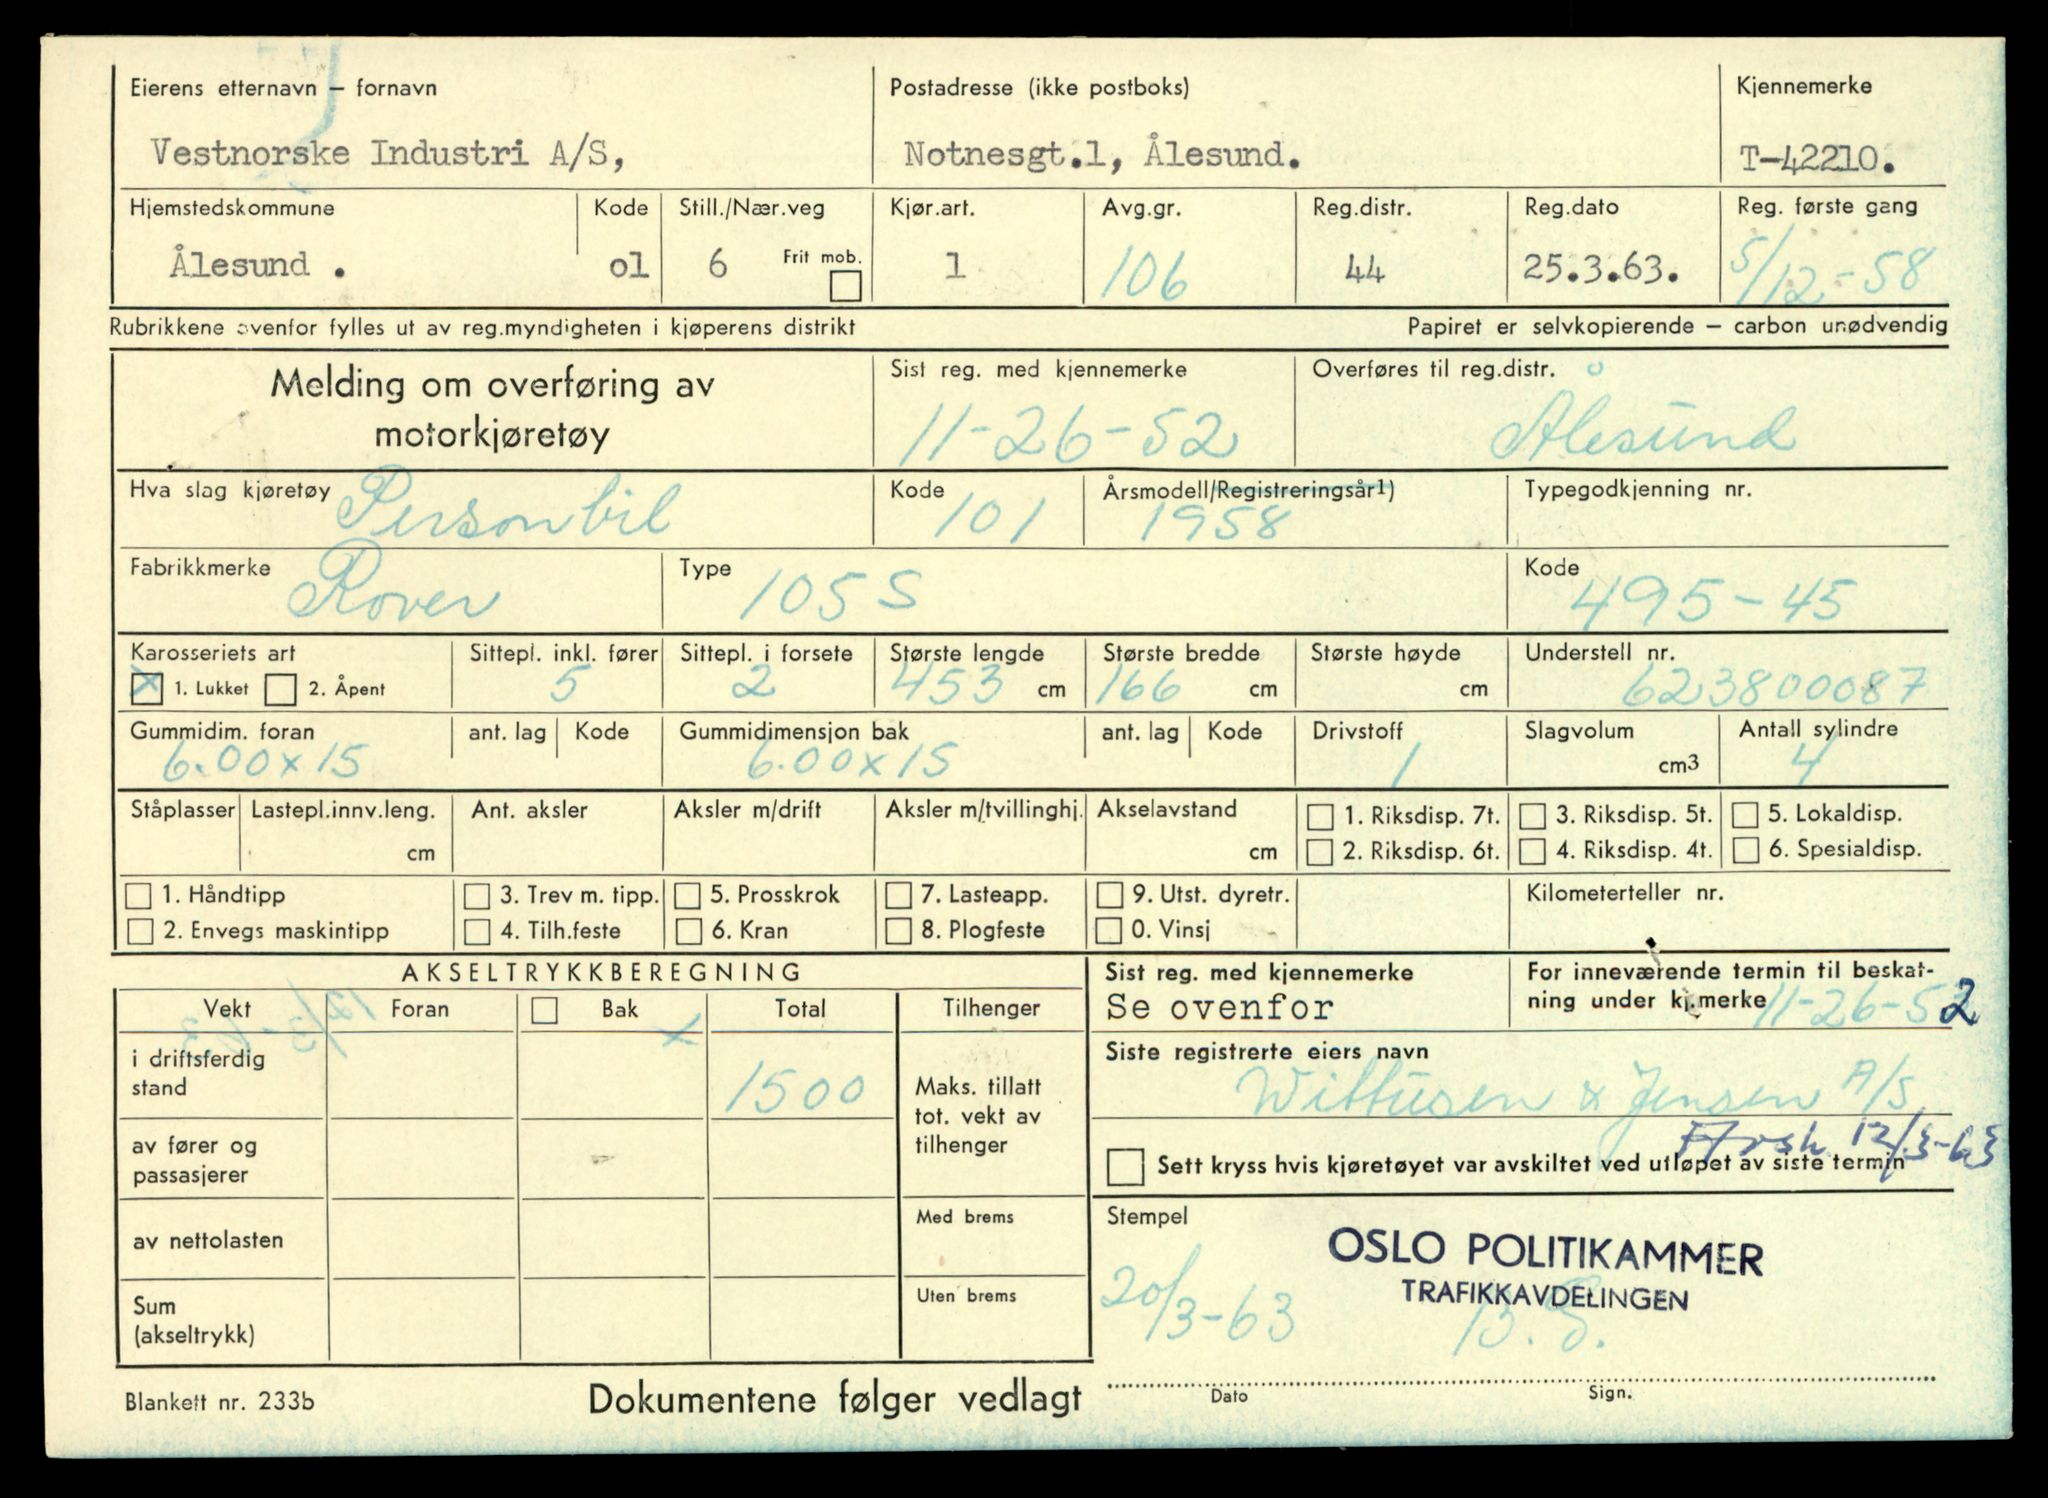 Eierens etternavn – fornavn Postadresse (ikke postboks) Kjennemerke
Vestnorske Industri A/S, Notnesgt.1, Ålesund. T-42210.
Hjemstedskommune Kode Still./Nær.veg Kjør.art. Avg.gr. Reg.distr. Reg.dato Reg. første gang
Ålesund . 01 6 Frit mob. 1 106 44 25.3.63. 5/12-58
Rubrikkene ovenfor fylles ut av reg.myndigheten i kjøperens distrikt Papiret er selvkopierende – carbon unødvendig
Melding om overføring av Sist reg. med kjennemerke Overføres til reg.distr.
motorkjøretøy 11-26-52 Ålesund
Hva slag kjøretøy Personbil Kode 101 Årsmodell/Registreringsår1) 1958 Typegodkjenning nr.
Fabrikkmerke Rover Type 105 S Kode 495-45
Karosseriets art Sittepl. inkl. fører Sittepl. i forsete Største lengde Største bredde Største høyde Understell nr.
x 1. Lukket 2. Åpent 5 2 453 cm 166 cm cm 623800087
Gummidim. foran ant. lag Kode Gummidimensjon bak ant. lag Kode Drivstoff Slagvolum Antall sylindre
6.00x15 6.00x15 1 cm3 4
Ståplasser Lastepl.innv.leng. Ant. aksler Aksler m/drift Aksler m/tvillinghj. Akselavstand 1. Riksdisp. 7t. 3. Riksdisp. 5t. 5. Lokaldisp.
cm cm 2. Riksdisp. 6t. 4. Riksdisp. 4t. 6. Spesialdisp.
1. Håndtipp 3. Trev m. tipp. 5. Prosskrok 7. Lasteapp. 9. Utst. dyretr. Kilometerteller nr.
2. Envegs maskintipp 4. Tilh.feste 6. Kran 8. Plogfeste 0. Vinsj
AKSELTRYKKBEREGNING Sist reg. med kjennemerke For inneværende termin til beskat-
Vekt Foran Bak Total Tilhenger Se ovenfor ning under kj.merke 11-26-52
i driftsferdig Siste registrerte eiers navn
stand 1500 Maks. tillatt Wittusen & Jensen A/S
tot. vekt av
av fører og tilhenger 12/3-63
passasjerer Sett kryss hvis kjøretøyet var avskiltet ved utløpet av siste termin
av nettolasten Med brems Stempel
OSLO POLITIKAMMER
Sum Uten brems 20/3-63 TRAFIKKAVDELINGEN
(akseltrykk)
Blankett nr. 233b Dokumentene følger vedlagt Dato Sign.